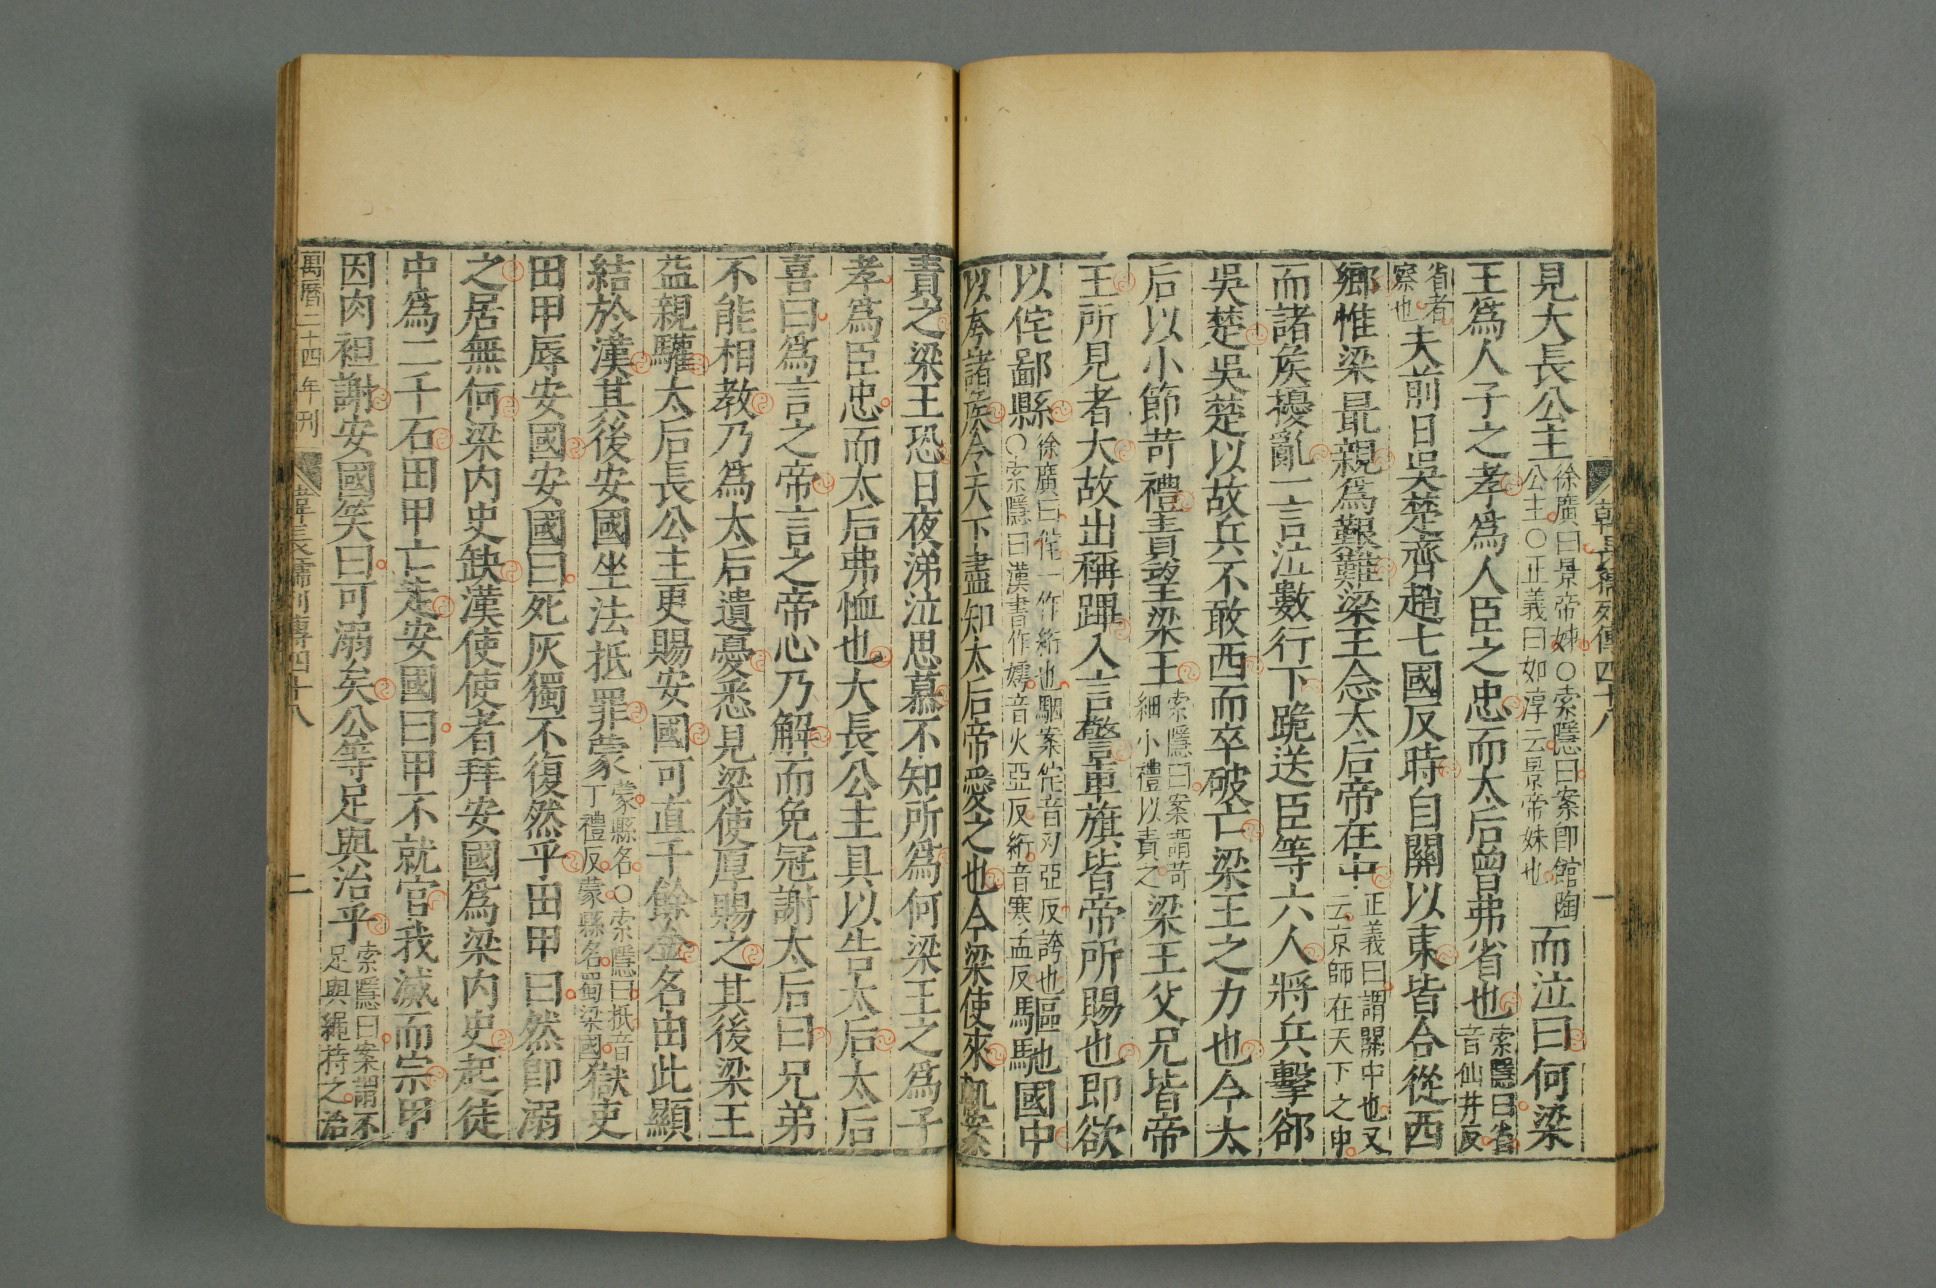 韓長孺列傳四十八
一
見大長公主徐廣曰景帝姊○索隱曰案即館陶公主○正義曰如淳云景帝妹也而泣曰何梁
王爲人子之孝爲人臣之忠而太后曾弗省也索隱曰省音仙井反
省者察也夫前日吳楚齊趙七國反時自關以東皆合從西
鄉惟梁最親爲艱難梁王念太后帝在中正義曰謂關中也又云京師在天下之中
而諸侯擾亂一言泣數行下跪送臣等六人將兵擊卻
吳楚吳楚以故兵不敢西而卒破亡梁王之力也今太
后以小節苛禮責望梁王索隱曰案謂苛細小禮以責之梁王父兄皆帝
王所見者大故出稱蹕入言警車旗皆帝所賜也即欲
以侘鄙縣徐廣曰侘一作紤也駰案侘音丑亞反誇也○索隱曰漢書作嫮音火亞反紤音寒孟反驅馳國中
以夸諸侯令天下盡知太后帝愛之也今梁使來輒案
責之梁王恐日夜涕泣思慕不知所爲何梁王之爲子
孝爲臣忠而太后弗恤也大長公主具以告太后太后
喜曰爲言之帝言之帝心乃解而免冠謝太后曰兄弟
不能相教乃爲太后遺憂悉見梁使厚賜之其後梁王
益親驩太后長公主更賜安國可直千餘金名由此顯
結於漢其後安國坐法抵罪蒙蒙縣名○索隱曰抵音丁禮反蒙縣名屬梁國獄吏
田甲辱安國安國曰死灰獨不復然乎田甲曰然即溺
之居無何梁內史缺漢使使者拜安國爲梁內史起徒
中爲二千石田甲亡走安國曰甲不就官我滅而宗甲
因肉袒謝安國笑曰可溺矣公等足與治乎索隱曰案謂不足與繩持之治
萬曆二十四年刊
韓長孺列傳四十八
二